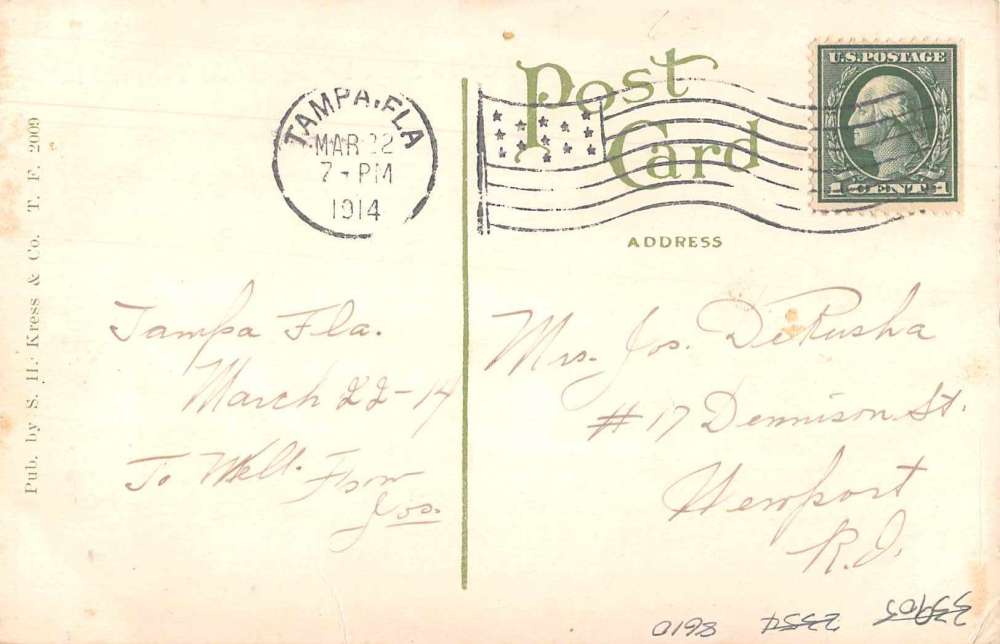 Pub. by S. H. Kress & Co. T. F. 2009
TAMPA, FLA
MAR 22
7 - PM
1914
Post
Card
ADDRESS
U.S. POSTAGE
1 CENT 1
Tampa Fla.
March 22-14
To Nell. From
Jos.
Mrs. Jos. DeRusha
#17 Dennison St.
Newport
R.I.
8610